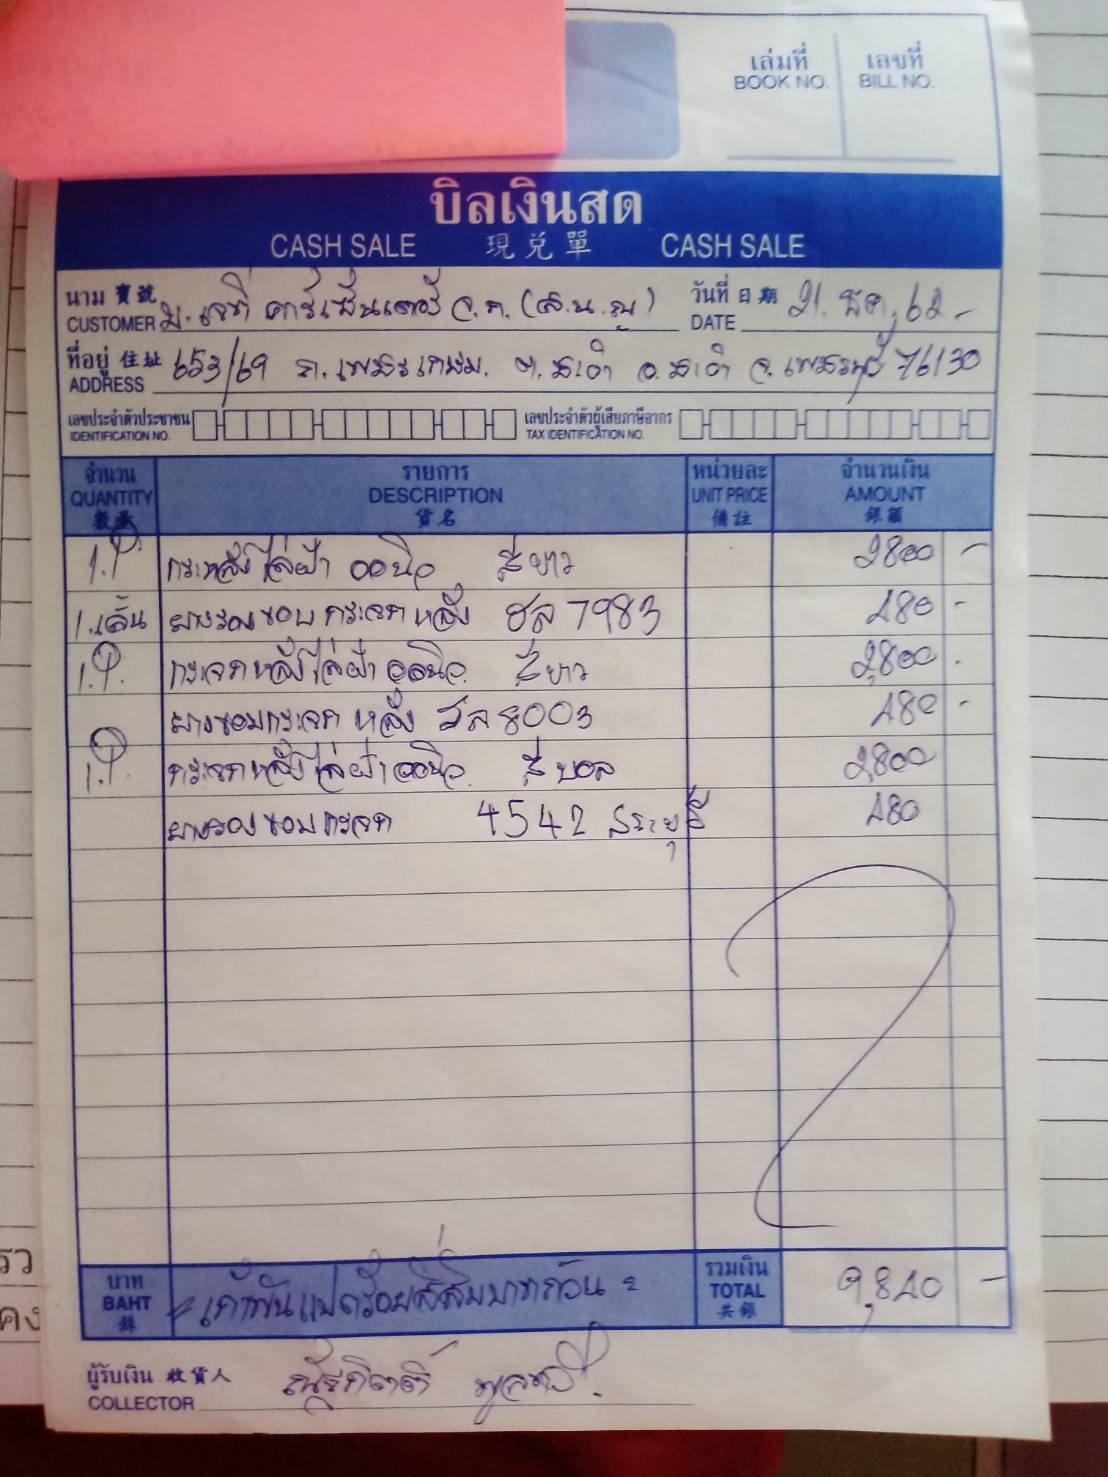 เล่มที่ เลขที่
BOOK NO. BILL NO.
บิลเงินสด
CASH SALE 現兌單 CASH SALE
นาม 寶號 วันที่ 日期 21. ธค. 62 -
CUSTOMER บ. เจที คาร์เซ็นเตอร์ จ.ก. (ส.น.ญ) DATE
ที่อยู่ 住址 653/69 ถ. เพชรเกษม. ต. ชะอำ อ. ชะอำ จ. เพชรบุรี 76130
ADDRESS
เลขประจำตัวประชาชน เลขประจำตัวผู้เสียภาษีอากร
IDENTIFICATION NO. TAX IDENTIFICATION NO.
จำนวน รายการ หน่วยละ จำนวนเงิน
QUANTITY DESCRIPTION UNIT PRICE AMOUNT
數量 貨名 備註 銀額
1. กระหลังไล่ฝ้า ออนิว สีขาว 2800 -
1. เส้น ยางรองขอบกระจกหลัง ฮล 7983 480 -
1. กระจกหลังไล่ฝ้า ออนิว สีขาว 2,800 -
ยางขอบกระจกหลัง ฮล 8003 480 -
1. กระจกหลังไล่ฝ้า ออนิว 2,800
ยางรองขอบกระจก 4542 สระบุรี 480
บาท รวมเงิน
BAHT = เก้าพันแปดร้อยสี่สิบบาทถ้วน = TOTAL 9,840 -
銖 共銀
ผู้รับเงิน 收貨人
COLLECTOR